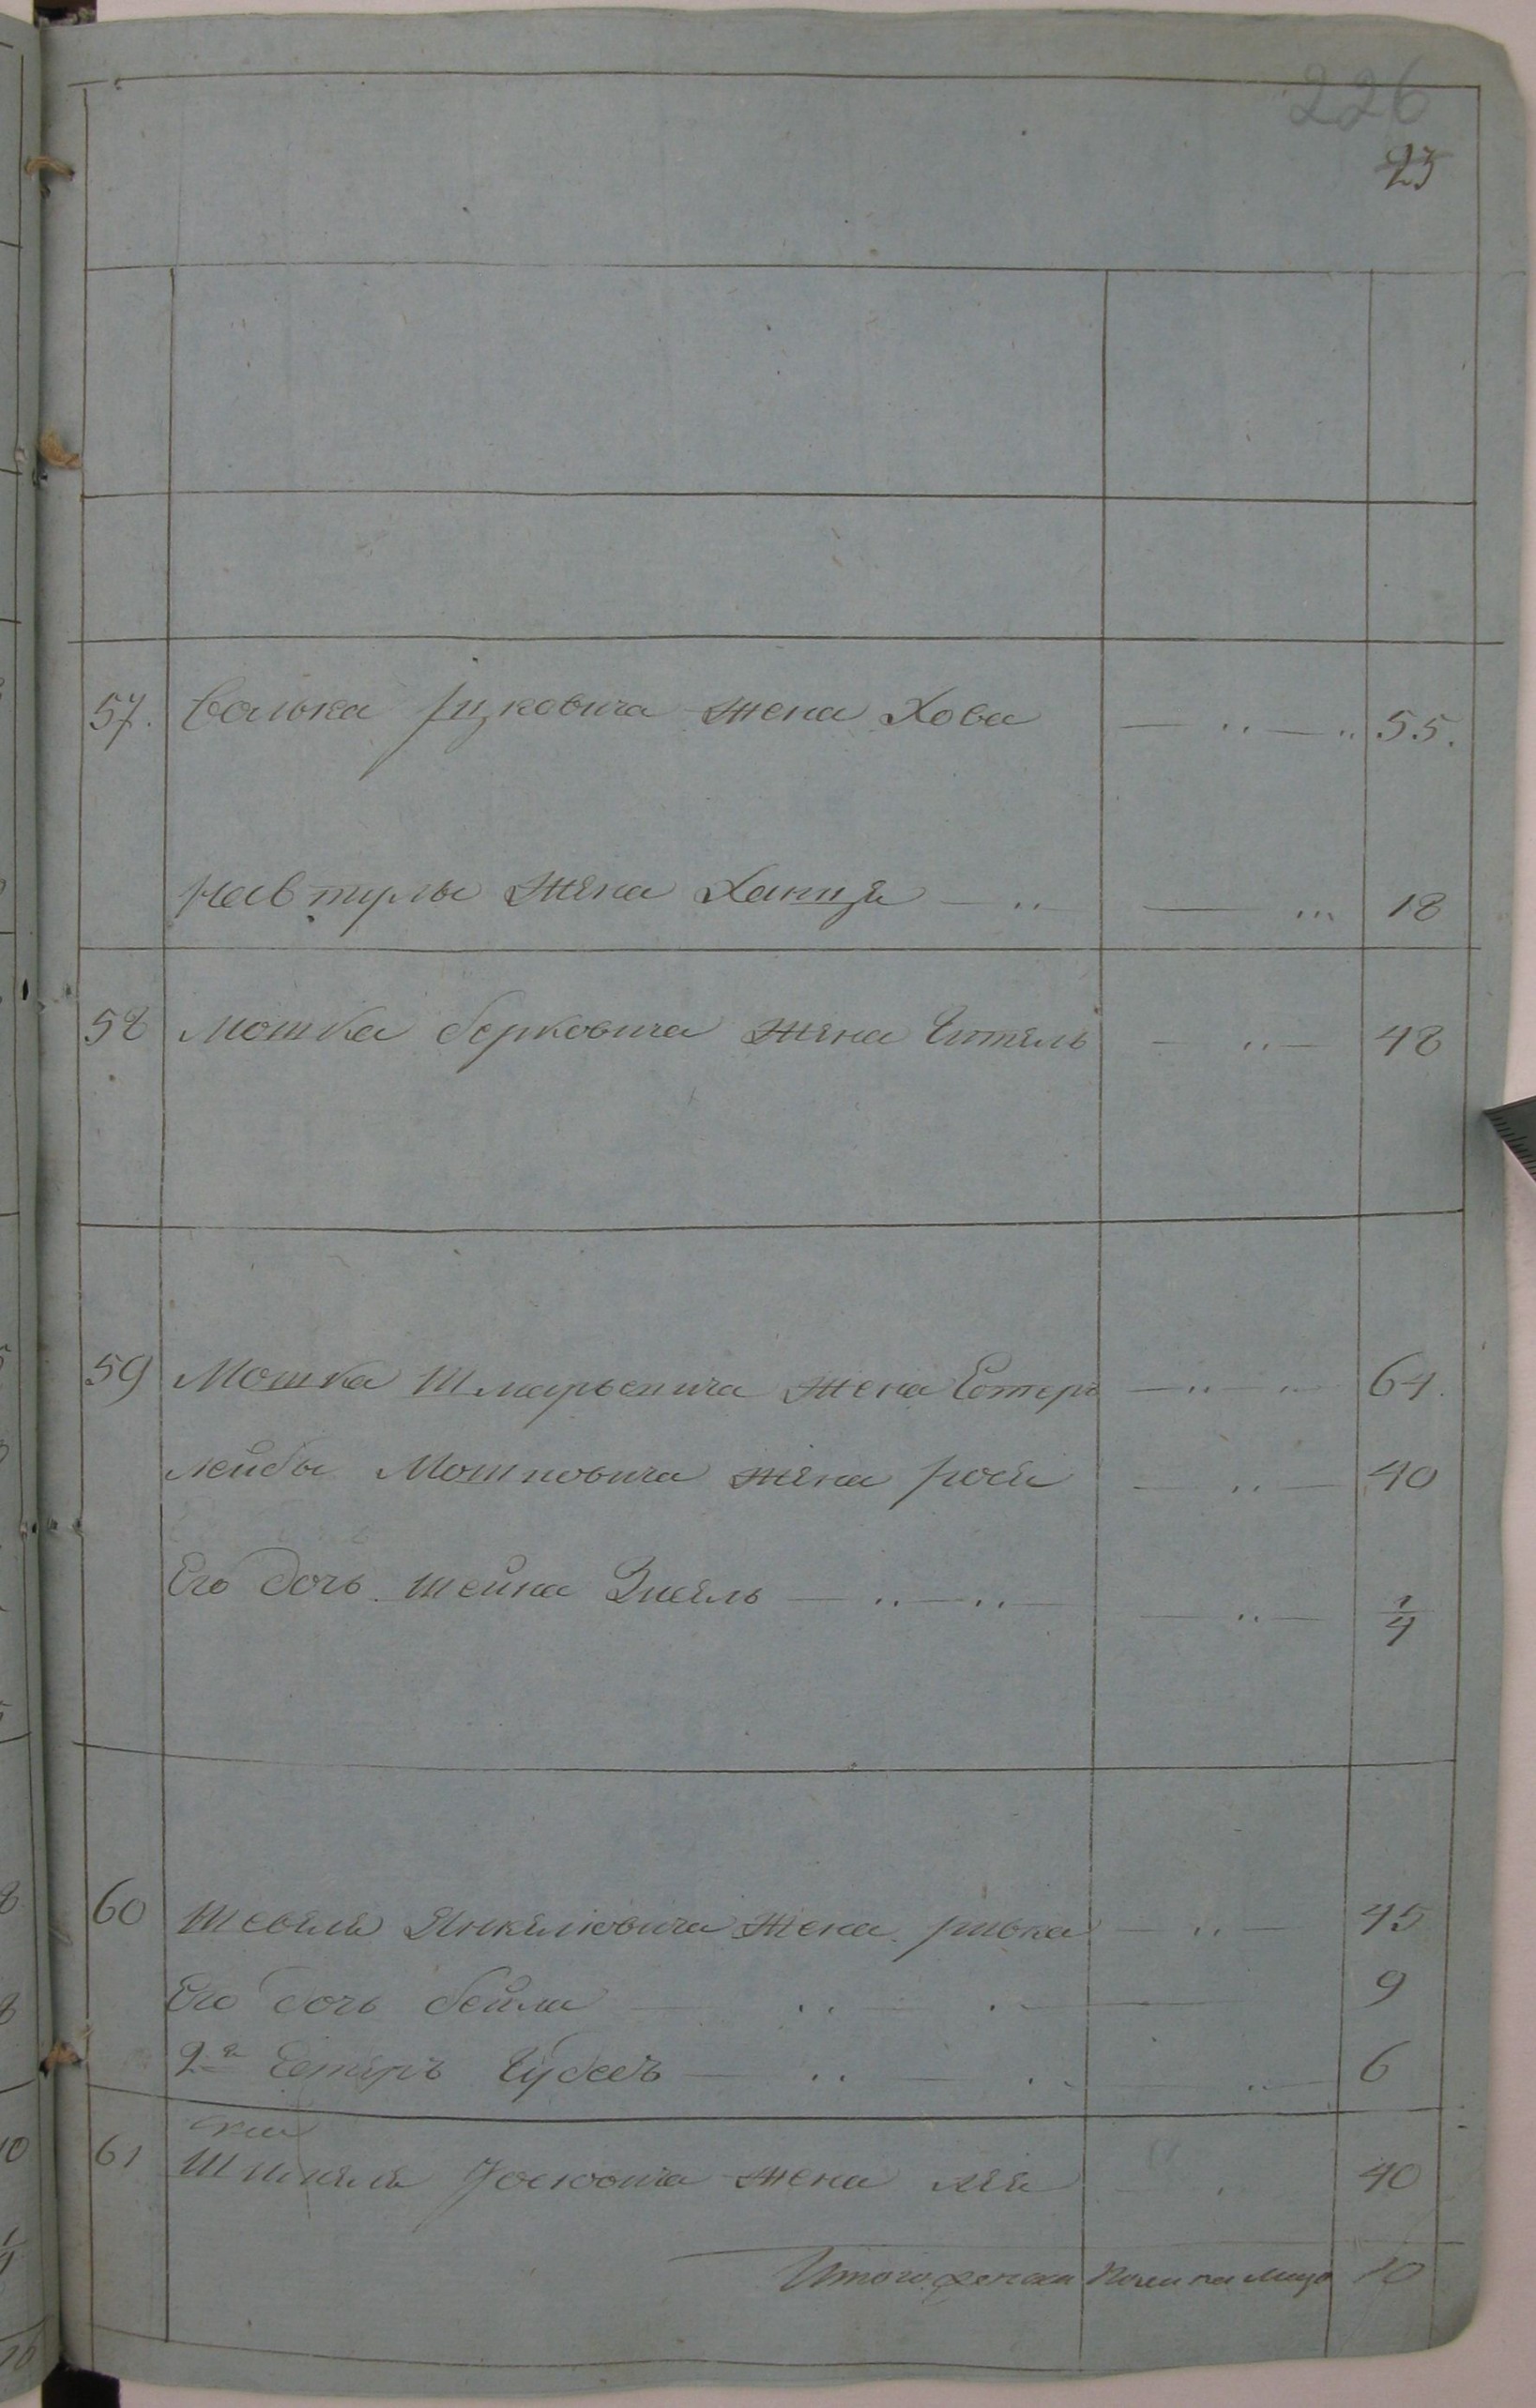 226
23
57. Волька Ицковича жена Хова — „ — „ 55.
Навтулы жена Ханця — „ — „ 18
58 Мошка Берковича жена Гитель — „ — 48
59 Мошка Шмарьевича жена Естеръ — „ — „ 64.
Лейбы Мошковича жена Рося — „ — 40
Его дочь Шейна Эшель — „ — „ — „ — 1/4
60 Шевеля Янкелювича жена Ривка — „ — 45
Его дочь Бейла — „ — „ — 9
2я Естеръ Гудесъ — „ — „ — „ — 6
61 Шмуеля Іосювича жена Лея 40
Итого женска пола на лицо 10